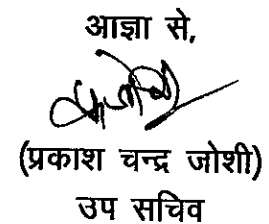 आज्ञा से,
(प्रकाश चन्द्र जोशी)
उप सचिव